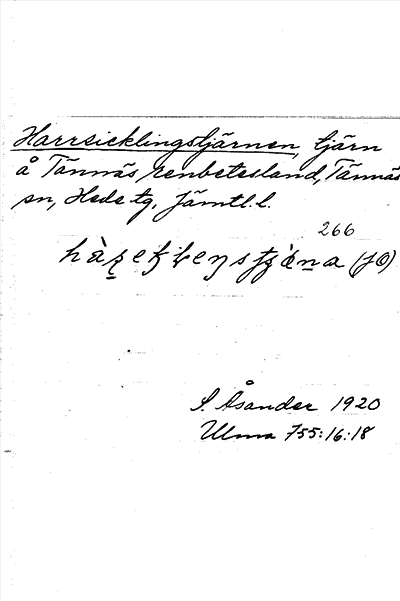 Harrsicklingstjärnen, tjärn
å Tännäs renbetesland, Tännäs
sn, Hede tg, Jämtl. l.
266
(JO)
S. Åsander 1920
Ulma 755:16:18